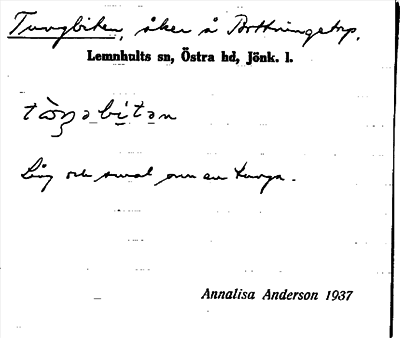 Tungbiten, åker å Bottningetorp.
Lemnhults sn, Östra hd, Jönk. l.
Låg och smal som en tunga.
Annalisa Anderson 1937